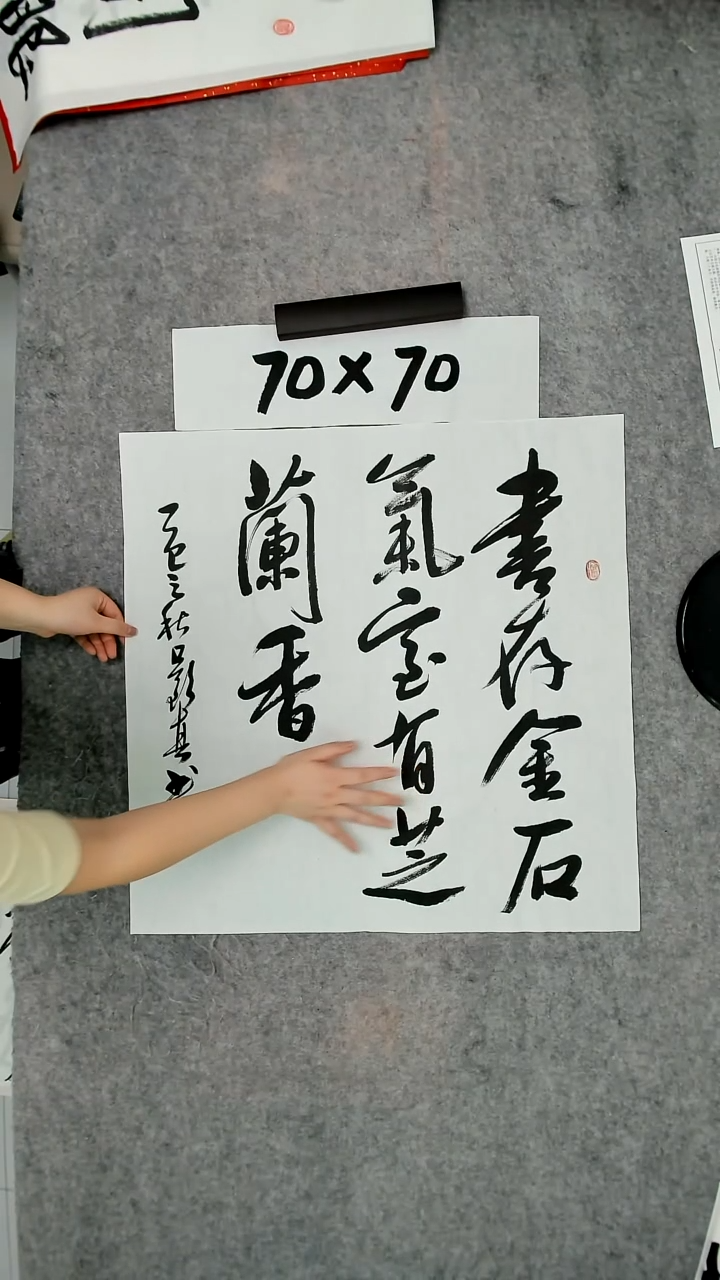 70×70
書存金石
氣室有芝
蘭香
乙巳之秋
書